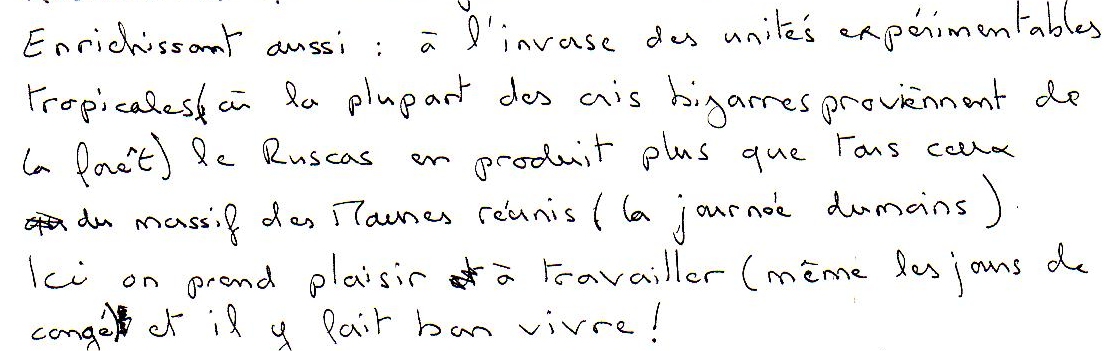 Enrichissant aussi : à l'inverse des unités expérimentables
tropicales (où la plupart des cris bizarres proviennent de
la forêt) le Ruscas en produit plus que tous ceux
du massif des Maures réunis (la journée du moins).
Ici on prend plaisir à travailler (même les jours de
congé) et il y fait bon vivre !